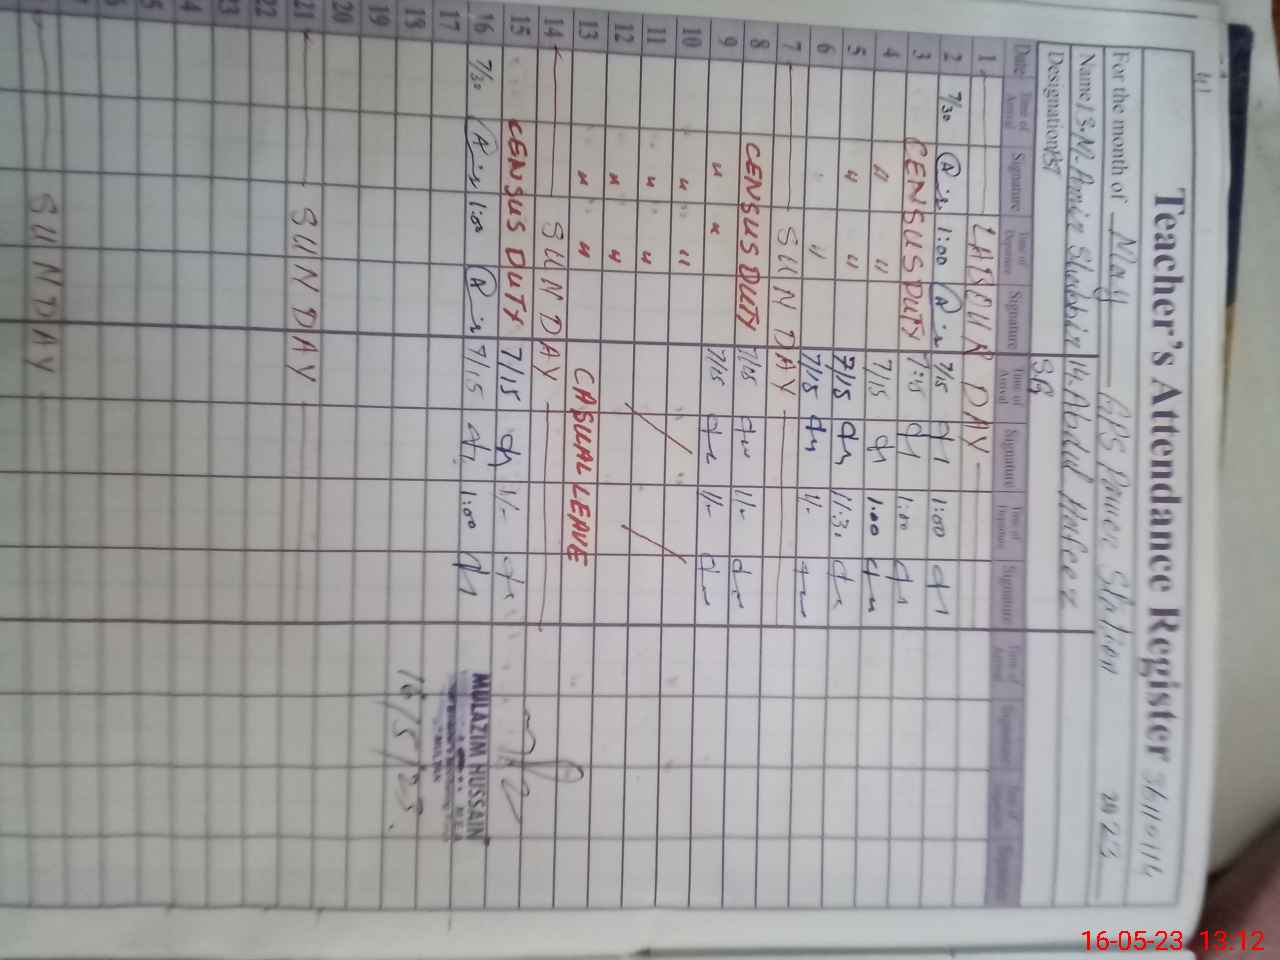 Teacher's Attendance Register 36110114
For the month of May GPS Power Station 2023
Name 13. M. Amir Shabbir 14. Abdul Hafeez
Designation PST
Date Time of Arrival Signature Time of Departure Signature Time of Arrival Signature Time of Departure Signature Time of Arrival Signature Time of Departure Signature
1 LABOUR DAY
2 7/30 1:00 7/15 1:00
3 CENSUS DUTY 7:15 1:00
4 " " 7/15 1:00
5 " " 7/15 11:3.
6 " 7/15 1/-
7 SUNDAY
8 CENSUS DUTY 7/15 1/-
9 " " 7/15 1/-
10 " "
11 " "
12 " "
13 " " CASUAL LEAVE
14 SUNDAY
15 CENSUS DUTY 7/15 1/-
16 7/30 1:00 7/15 1:00
MULAZIM HUSSAIN
17
18 16/5/23.
19
20
21 SUNDAY
22
23
SUNDAY
16-05-23 13:12